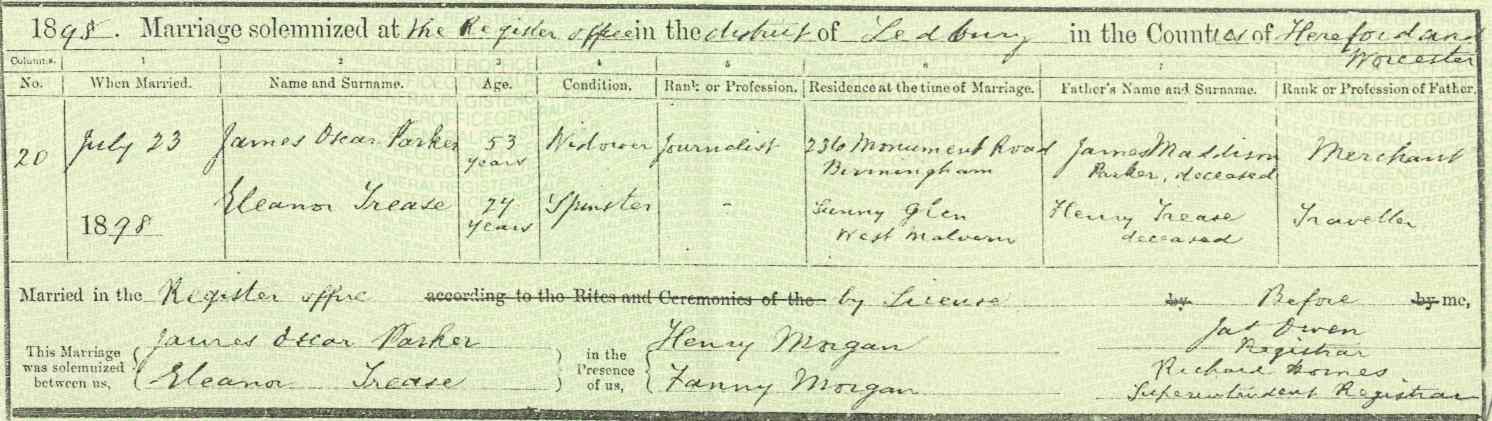 1898. Marriage solemnized at the Register office in the district of Ledbury in the Counties of Hereford and Worcester
Columns. 1 2 3 4 5 6 7 8
No. When Married. Name and Surname. Age. Condition. Rank or Profession. Residence at the time of Marriage. Father's Name and Surname. Rank or Profession of Father.
20 July 23 James Oscar Parker 53 years Widower Journalist 236 Monument Road Birmingham James Maddison Parker, deceased Merchant
1898 Eleanor Trease 27 years Spinster - Sunny Glen West Malvern Henry Trease deceased Traveller
Married in the Register office according to the Rites and Ceremonies of the by License by Before by me,
This Marriage was solemnized between us, James Oscar Parker Eleanor Trease in the Presence of us, Henry Morgan Fanny Morgan
Jas Owen
Registrar
Richard Homes
Superintendent Registrar